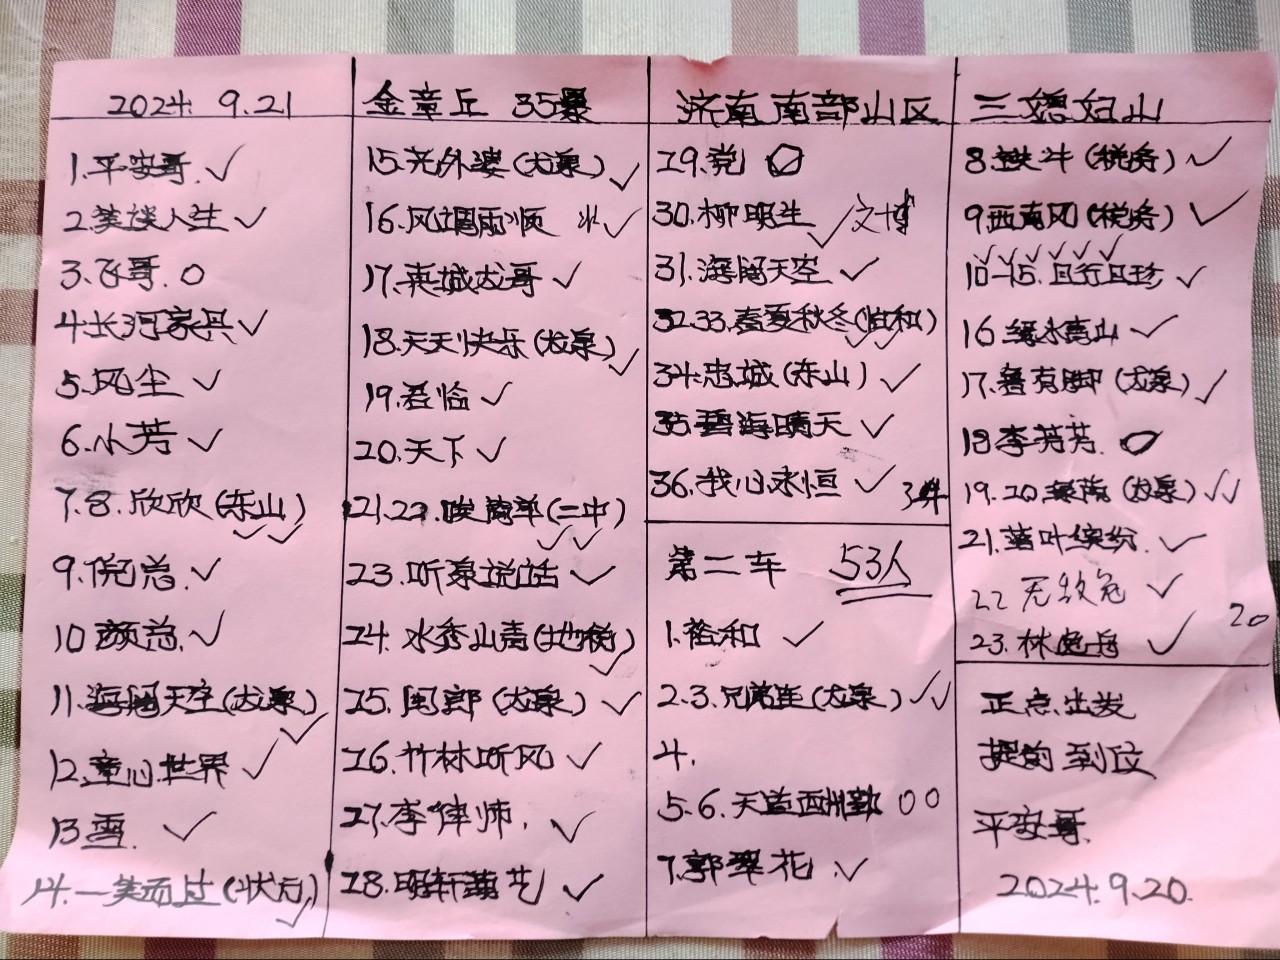 2024. 9.21
1.平安哥 ✓
2.笑谈人生 ✓
3.飞哥. O
4.长河家兵 ✓
5.风尘 ✓
6.小芳 ✓
7.8.欣欣(东山) ✓✓
9.倪总. ✓
10 颜总. ✓
11.海阔天空(龙泉) ✓
12.童心世界 ✓
13雪. ✓
14.一笑而过(状元) ✓
金章丘 35景
15.老外婆(龙泉) ✓
16.风调雨顺 ✓
17.英城龙哥 ✓
18.天天快乐(龙泉) ✓
19.君临 ✓
20.天下 ✓
21.22.(二中) ✓✓
23.听泉说话 ✓
24.水秀山青(地税) ✓
25.闲郎(龙泉) ✓
26.竹林听风 ✓
27.李律师. ✓
28.明轩蒲艺 ✓
济南南部山区
29.党 O
30.柳明生 ✓ 文博
31.海阔天空 ✓
32.33.春夏秋冬(怡和) ✓✓
34.忠诚(东山) ✓
35 碧海晴天 ✓
36.我心永恒 ✓
第二车 53人
1.裕和 ✓
2.3.兄弟连(龙泉) ✓✓
4.
5.6.天道酬勤 OO
7.郭翠花 ✓
三媳妇山
8.铁牛(税务) ✓
9西南风(税务) ✓
✓✓✓✓✓✓
10-15.且行且珍 ✓
16绿水青山 ✓
17.春有脚(龙泉) ✓
18李芳芳. O
19.20(龙泉) ✓✓
21.落叶缤纷. ✓
22 ✓
23.林 ✓
20
正点出发
提前到位
平安哥.
2024.9.20.